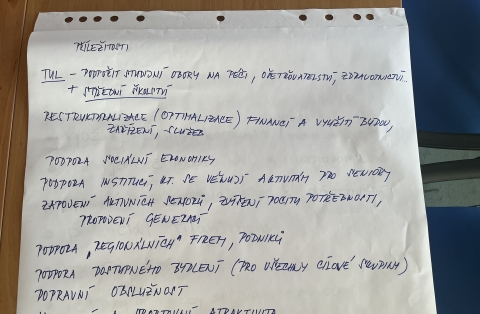 PŘÍLEŽITOSTI
TUL - PODPOŘIT STUDIJNÍ OBORY NA PÉČI, OŠETŘOVATELSTVÍ, ZDRAVOTNICTVÍ...
+ STŘEDNÍ ŠKOLSTVÍ
RESTRUKTURALIZACE (OPTIMALIZACE) FINANCÍ A VYUŽITÍ BUDOV,
ZAŘÍZENÍ, SLUŽEB
PODPORA SOCIÁLNÍ EKONOMIKY
PODPORA INSTITUCÍ, KT. SE VĚNUJÍ AKTIVITÁM PRO SENIORY
ZAPOJENÍ AKTIVNÍCH SENIORŮ, ZVÝŠENÍ POCITU POTŘEBNOSTI,
PROPOJENÍ GENERACÍ
PODPORA "REGIONÁLNÍCH" FIREM, PODNIKŮ
PODPORA DOSTUPNÉHO BYDLENÍ (PRO VŠECHNY CÍLOVÉ SKUPINY)
DOPRAVNÍ OBSLUŽNOST
A SPORTOVNÍ ATRAKTIVITA